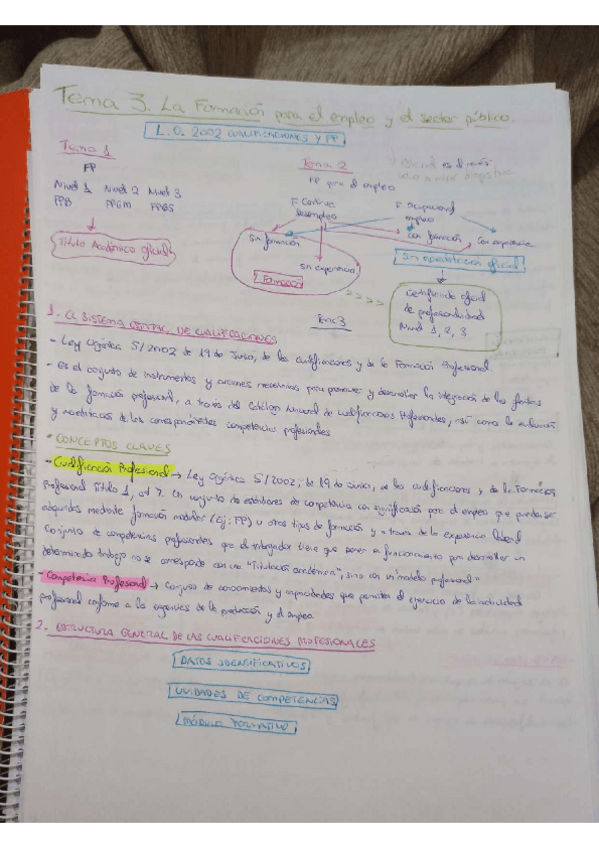 Tema 3. La Formación para el empleo y el sector público.
L.O. 2002 CUALIFICACIONES Y FP.
Tema 1
FP
Nivel 1 Nivel 2 Nivel 3
FPB FPGM FPGS
Título Académico oficial
Tema 2
FP para el empleo
F Continua
desempleo
F Ocupacional
empleo
Sin formación
Con formación
Con experiencia
Sin experiencia
Formación
Sin acreditación oficial
Certificado oficial
de profesionalidad
Nivel 1, 2, 3
Tema 3
1. EL SISTEMA DE CUALIFICACIONES
- Ley Orgánica 5/2002 de 19 de Junio, de las cualificaciones y de la Formación Profesional.
- Es el conjunto de instrumentos y acciones necesarios para promover y desarrollar la integración de las ofertas
de la formación profesional, a través del Catálogo Nacional de cualificaciones Profesionales, así como la evaluación
y acreditación de las correspondientes competencias profesionales
- CONCEPTOS CLAVES
- Cualificación Profesional → Ley Orgánica 5/2002, de 19 de Junio, de las cualificaciones y de la Formación
Profesional Título 1, art 7. Un conjunto de estándares de competencia con significación para el empleo que puede ser
adquiridos mediante formación modular (Ej: FP) u otros tipos de formación y a través de la experiencia laboral
Conjunto de competencias profesionales que el trabajador tiene que poner en funcionamiento para desarrollar un
determinado trabajo no se corresponde con una "Titulación académica", sino con un "modelo profesional"
- Competencia Profesional → Conjunto de conocimientos y capacidades que permiten el ejercicio de la actividad
profesional conforme a las exigencias de la producción y el empleo
2. ESTRUCTURA GENERAL DE LAS CUALIFICACIONES PROFESIONALES
DATOS IDENTIFICATIVOS
UNIDADES DE COMPETENCIAS
MÓDULO FORMATIVO